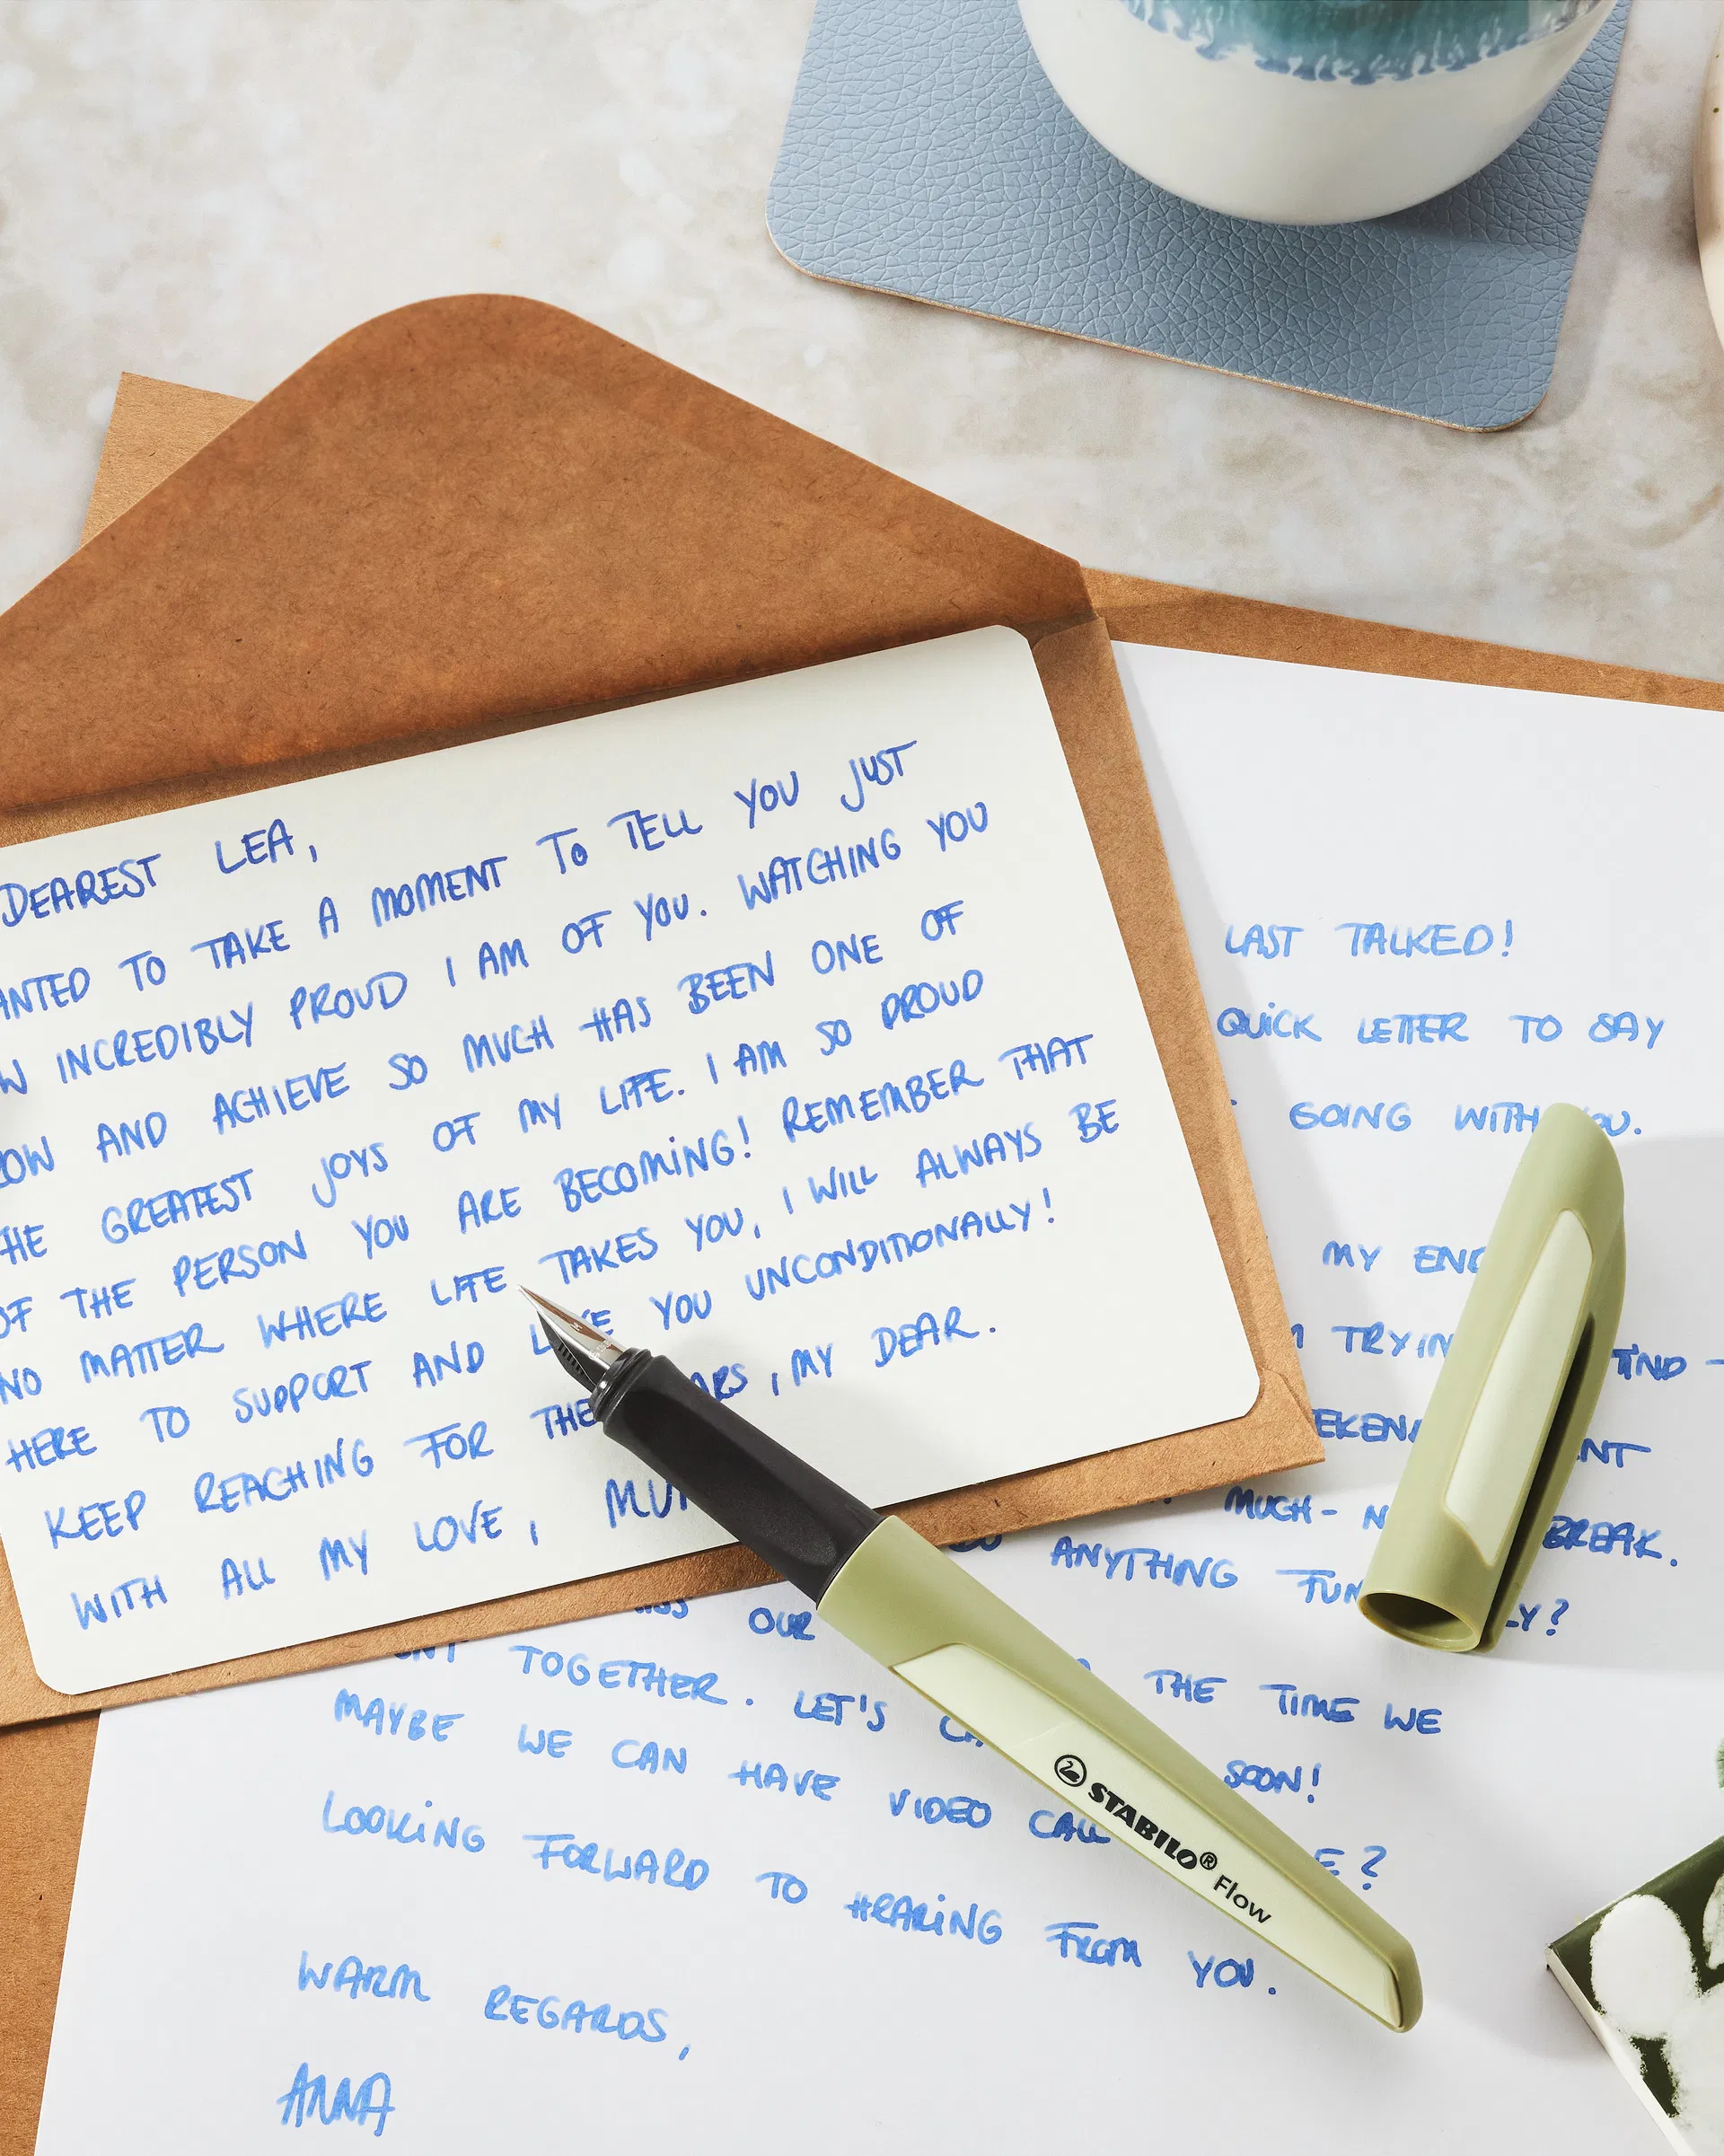 DEAREST LEA,
ANTED TO TAKE A MOMENT TO TELL YOU JUST
W INCREDIBLY PROUD I AM OF YOU. WATCHING YOU
OW AND ACHIEVE SO MUCH HAS BEEN ONE OF
HE GREATEST JOYS OF MY LIFE. I AM SO PROUD
OF THE PERSON YOU ARE BECOMING! REMEMBER THAT
NO MATTER WHERE LIFE TAKES YOU, I WILL ALWAYS BE
HERE TO SUPPORT AND YOU UNCONDITIONALLY!
KEEP REACHING FOR THE ARS, MY DEAR.
WITH ALL MY LOVE, MU
LAST TALKED!
QUICK LETTER TO SAY
GOING WITH OU.
MY END
TRYIN IND
EKEN ENT
MUCH- N BREAK.
ANYTHING FUN LY?
OUR THE TIME WE
ENT TOGETHER. LET'S SOON!
MAYBE WE CAN HAVE VIDEO CALL E?
LOOKING FORWARD TO HEARING FROM YOU.
WARM REGARDS,
ANNA
STABILO® Flow